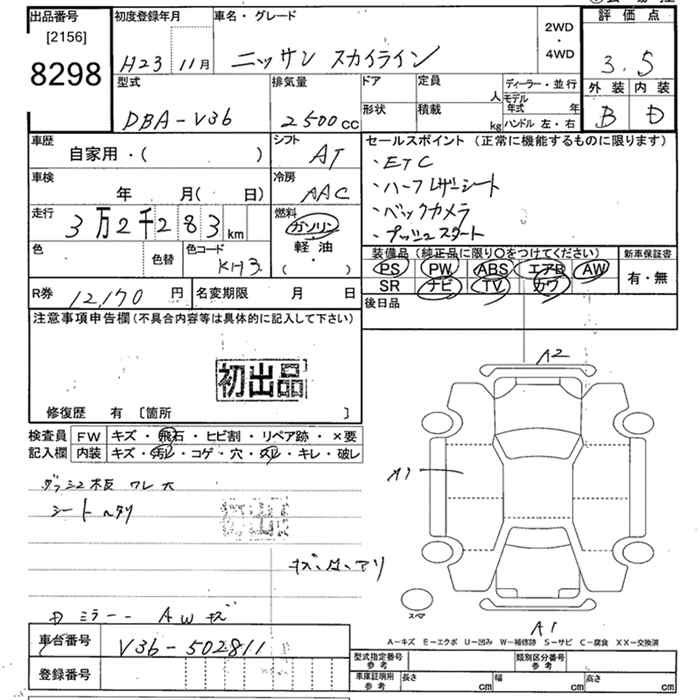 出品番号
[2156]
8298
初度登録年月
H23 11月
車名・グレード
ニッサン スカイライン
2WD
・
4WD
評価点
3.5
外装 内装
B D
型式
DBA-V36
排気量
2500cc
ドア
形状
定員
人
積載
kg
ディーラー・並行
モデル年式 年
ハンドル 左・右
車歴
自家用・( )
シフト
AT
車検
年 月( 日)
冷房
AAC
走行
3万2千283km
燃料
ガソリン
軽油
( ・ )
色
色替
色コード
KH3
セールスポイント (正常に機能するものに限ります)
・ETC
・ハーフレザーシート
・バックカメラ
・プッシュスタート
装備品(純正品に限り○をつけてください)
PS PW ABS エアB AW
SR ナビ TV カワ
新車保証書
有・無
後日品
R券 12,170円
名変期限 月 日
注意事項申告欄(不具合内容等は具体的に記入して下さい)
初出品
修復歴 有 [箇所 ]
検査員
記入欄
FW キズ・飛石・ヒビ割・リペア跡・×要
内装 キズ・汚レ・コゲ・穴・スレ・キレ・破レ
ダッシュ板 ワレ大
シート ヘタリ
ミラー AWキズ
A2
A1
スペア
A1
A-キズ E-エクボ U-凹み W-補修跡 S-サビ C-腐食 XX-交換済
車台番号
V36-502811
登録番号
型式指定番号
参考
類別区分番号
参考
車庫証明用
参考
長さ cm
幅 cm
高さ cm